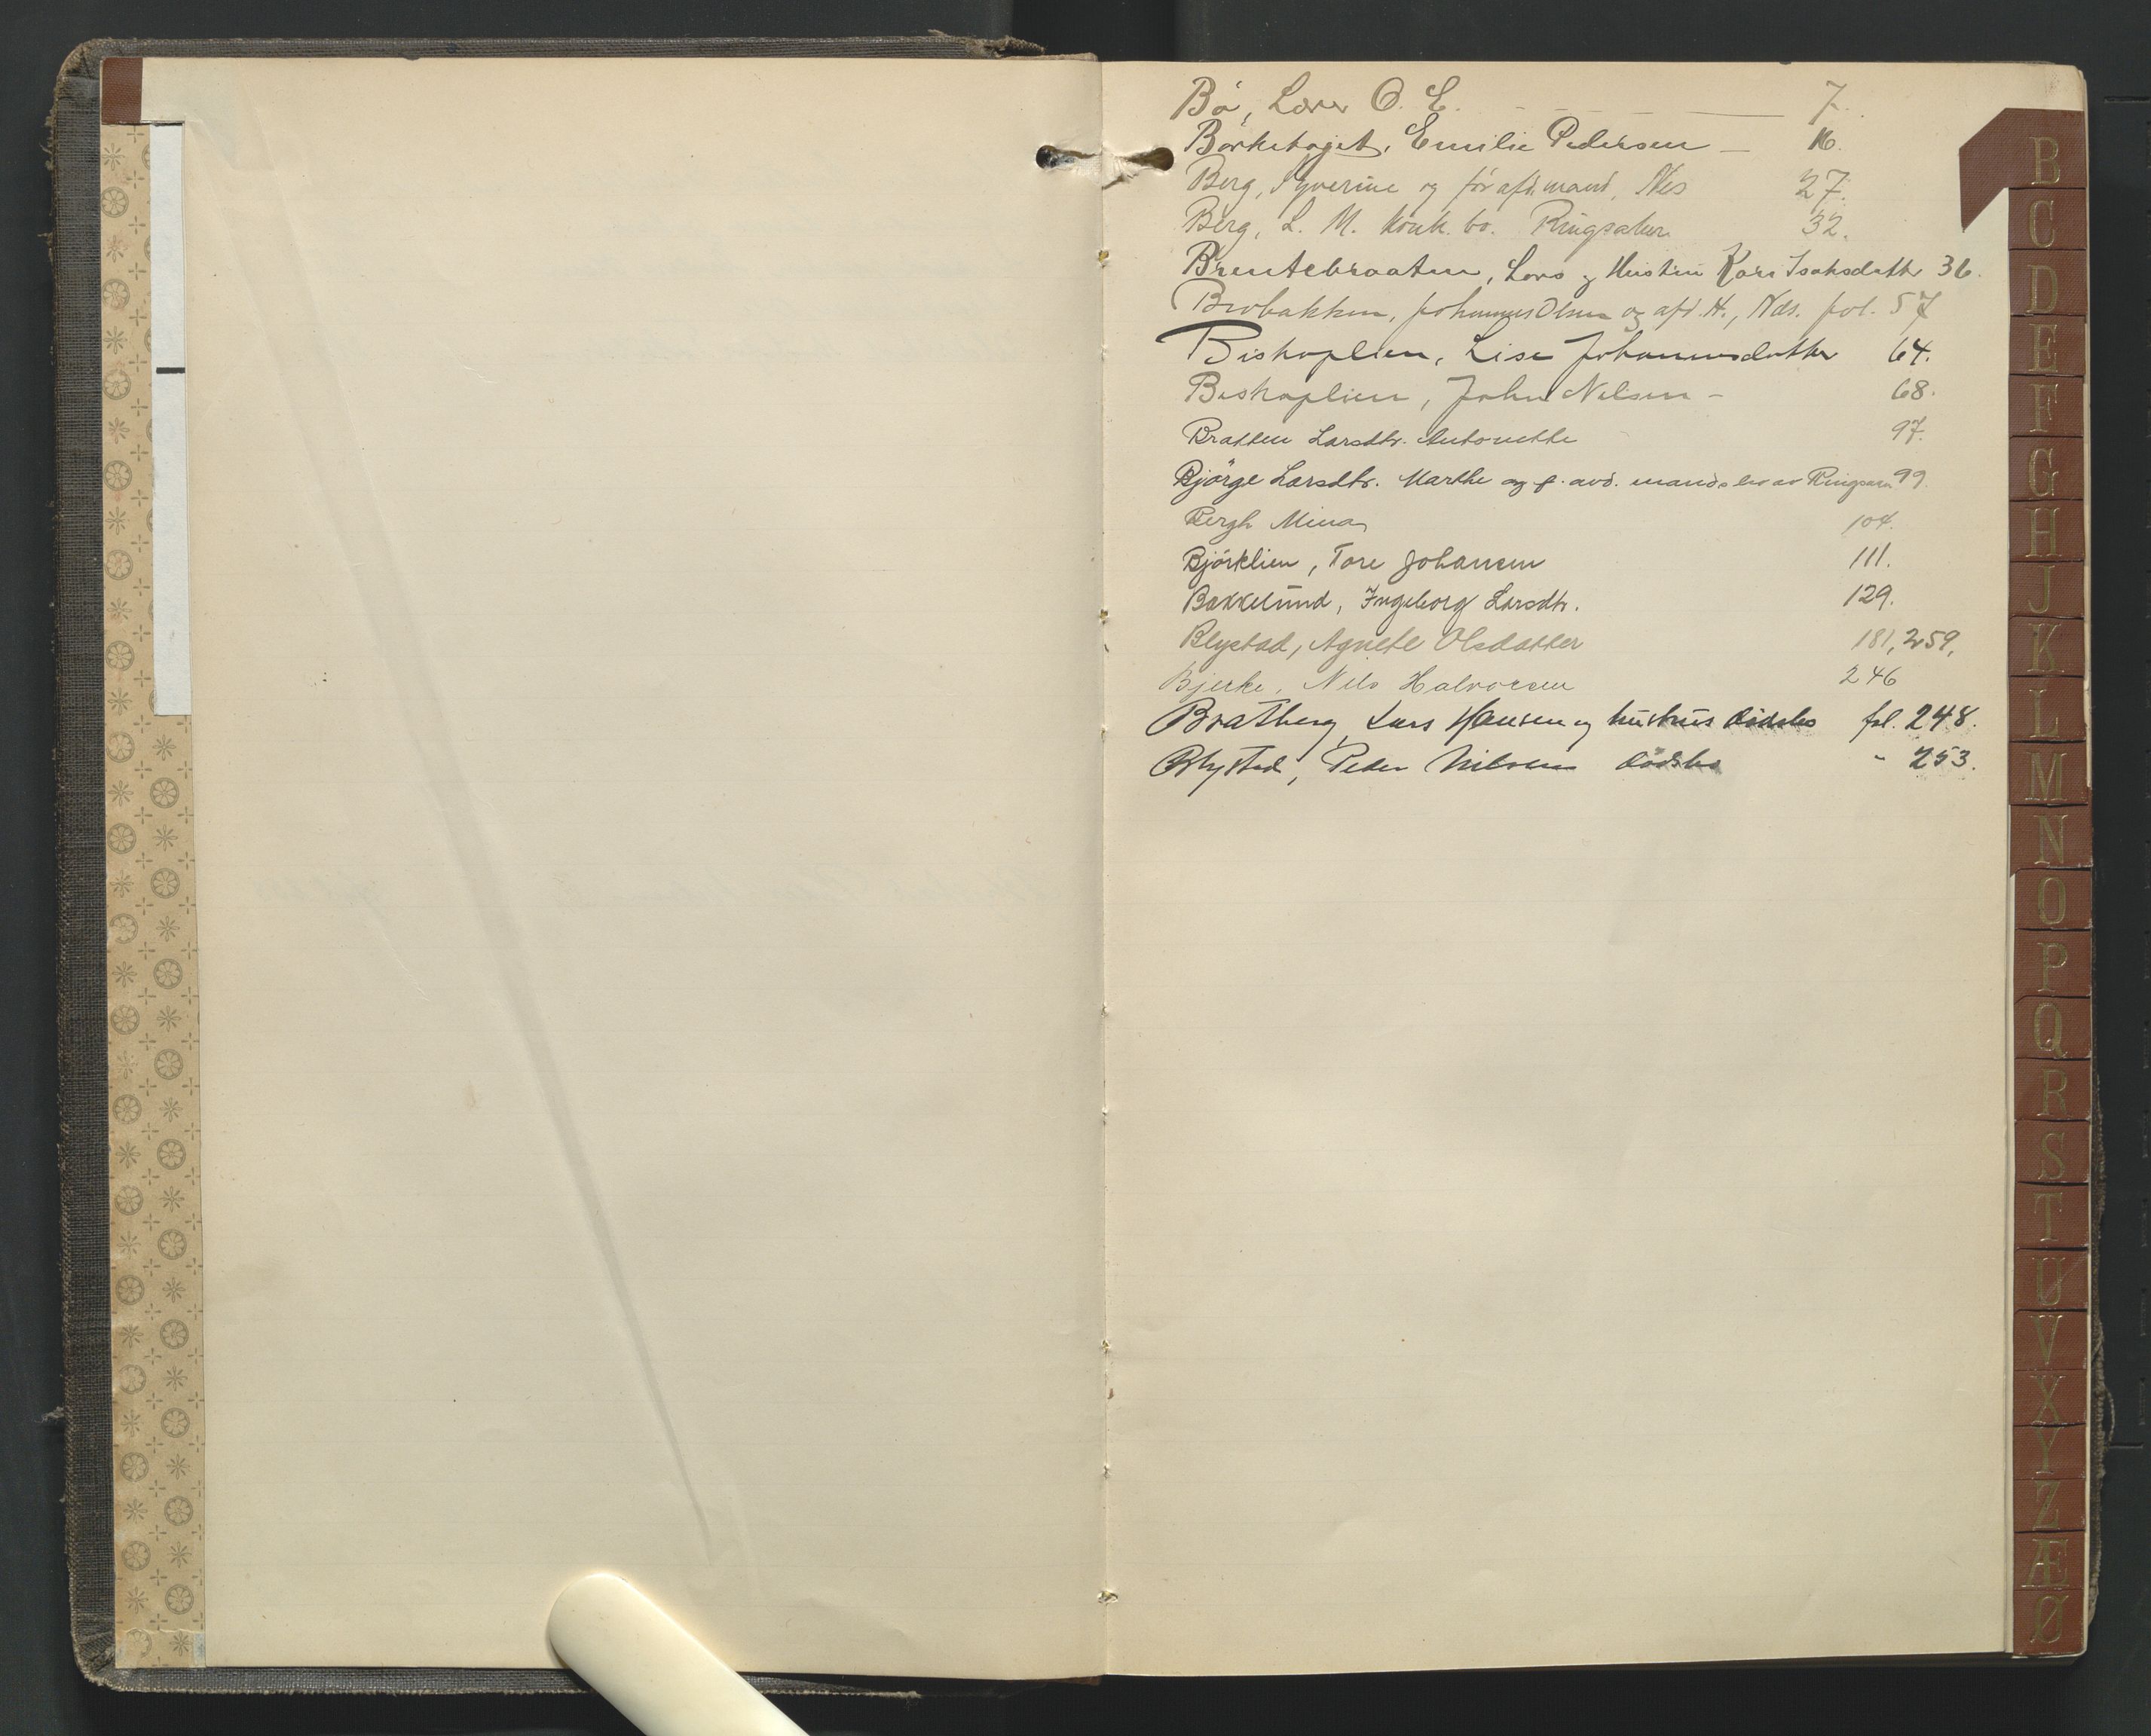 Bö, Lærer O. E. - - - 7.
Börkehaget, Emilie Pedersen - 16.
Berg, Syverine og för afd. mand, Nes 27.
Berg, L. M. konk. bo. Ringsaker 32.
Brentebraaten, Lars og Hustru Kari Isaksdatter 36.
Brobakken, Johannes Olsen og afd. H., Nes. fol. 57
Biskoplien, Lise Johannesdatter 64.
Biskoplien, John Nilsen - 68.
Bratten Larsdtr. Antonette 97.
Bjørge Larsdtr. Marthe og f. avd. mands bo av Ringsaker 99.
Bergh Mina 104.
Björklien, Tore Johansen 111.
Bakkelund, Ingeborg Larsdtr. 129.
Blystad, Agnete Olsdatter 181, 259,
Bjerke, Nils Halvorsen 246
Bratberg, Lars Hansen og hustrus dödsbo fol. 248.
Blystad, Peder Nilsens dödsbo " 253.
B
C
D
E
F
G
H
J
K
L
M
N
O
P
Q
R
S
T
U
V
X
Y
Z
Æ
Ø